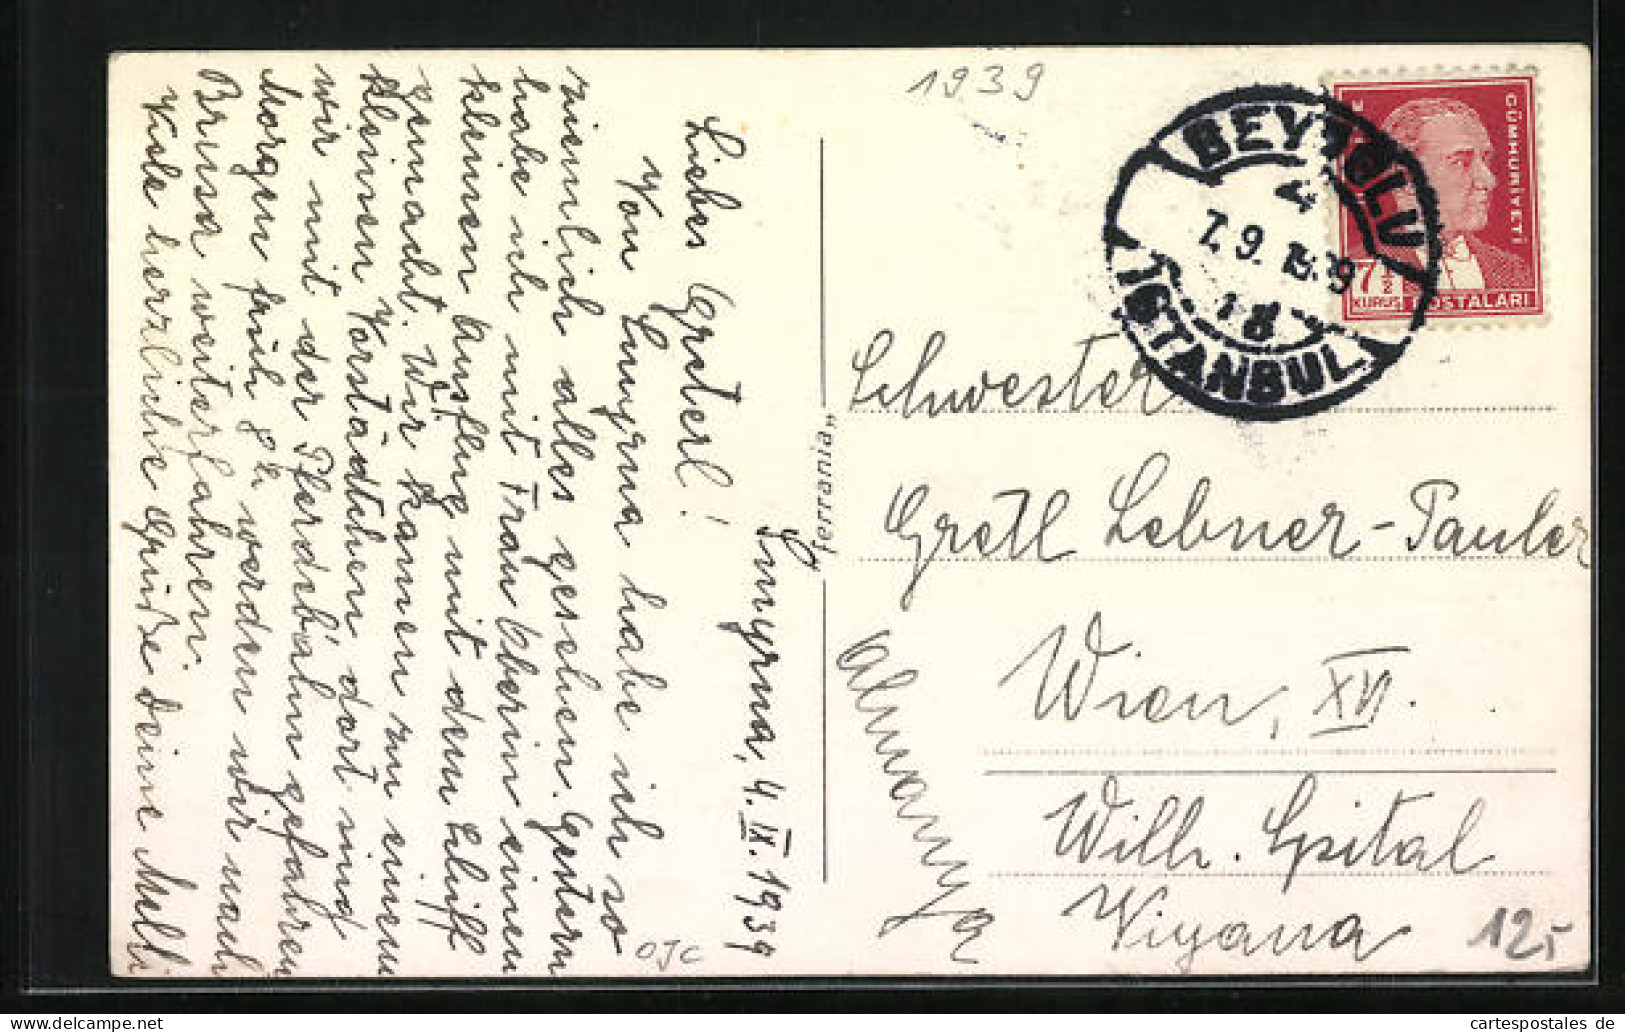 1939
BEYOĞLU
4
7.9.1939
18
ISTANBUL
CÜMHURİYETİ
7½
KURUŞ POSTALARI
Smyrna, 4. IX. 1939
Liebes Greterl!
Von Smyrna habe ich so
ziemlich alles gesehen. Gestern
habe ich mit Frau Oberin einen
kleinen Ausflug mit dem Schiff
gemacht. Wir kamen zu einem
kleinen Vorstädtchen, dort sind
wir mit der Pferdebahn gefahren
Morgen früh 8h werden wir nach
Brussa weiterfahren.
Viele herzliche Grüße Deine Melli
OJC
"ferrania"
Schwester
Gretl Lebner-Pauler
Wien, XVI.
Wilh. Spital
Viyana
Almanya
125
cartespostales de